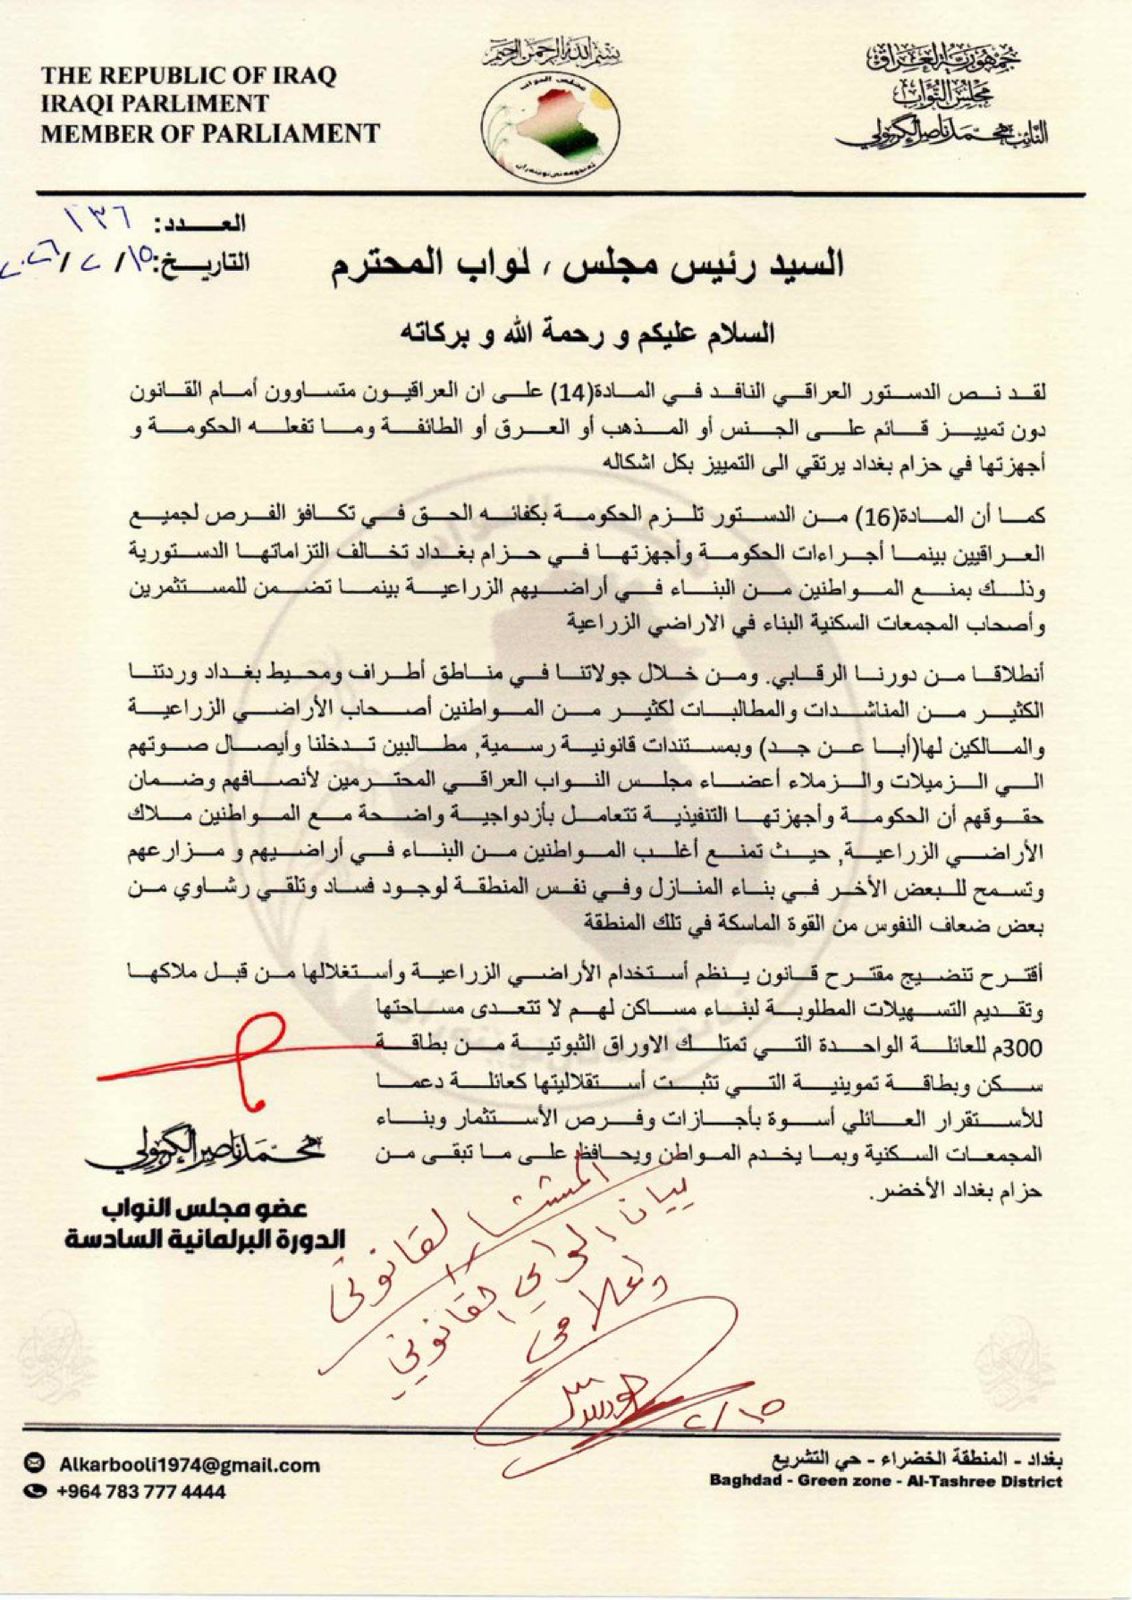 THE REPUBLIC OF IRAQ
IRAQI PARLIMENT
MEMBER OF PARLIAMENT
بسم الله الرحمن الرحيم
مجلس النواب
جمهورية العراق
مجلس النواب
النائب محمد ناصر الكربولي
العـــدد: ١٣٦
التاريـــخ: ١٥/ ٢ /٢٠٢٦
السيد رئيس مجلس ، لواب المحترم
السلام عليكم و رحمة الله و بركاته
لقد نص الدستور العراقي النافد في المادة(14) على ان العراقيون متساوون أمام القانون
دون تمييز قائم على الجنس أو المذهب أو العرق أو الطائفة وما تفعله الحكومة و
أجهزتها في حزام بغداد يرتقي الى التمييز بكل اشكاله
كما أن المادة(16) من الدستور تلزم الحكومة بكفائه الحق في تكافؤ الفرص لجميع
العراقيين بينما أجراءات الحكومة وأجهزتها في حزام بغداد تخالف التزاماتها الدستورية
وذلك بمنع المواطنين من البناء في أراضيهم الزراعية بينما تضمن للمستثمرين
وأصحاب المجمعات السكنية البناء في الاراضي الزراعية
أنطلاقا من دورنا الرقابي. ومن خلال جولاتنا في مناطق أطراف ومحيط بغداد وردتنا
الكثير من المناشدات والمطالبات لكثير من المواطنين أصحاب الأراضي الزراعية
والمالكين لها(أبا عن جد) وبمستندات قانونية رسمية, مطالبين تدخلنا وأيصال صوتهم
الي الزميلات والزملاء أعضاء مجلس النواب العراقي المحترمين لأنصافهم وضمان
حقوقهم أن الحكومة وأجهزتها التنفيذية تتعامل بأزدواجية واضحة مع المواطنين ملاك
الأراضي الزراعية, حيث تمنع أغلب المواطنين من البناء في أراضيهم و مزارعهم
وتسمح للبعض الأخر في بناء المنازل وفي نفس المنطقة لوجود فساد وتلقي رشاوي من
بعض ضعاف النفوس من القوة الماسكة في تلك المنطقة
أقترح تنضيج مقترح قانون ينظم أستخدام الأراضي الزراعية وأستغلالها من قبل ملاكها
وتقديم التسهيلات المطلوبة لبناء مساكن لهم لا تتعدى مساحتها
300م للعائلة الواحدة التي تمتلك الاوراق الثبوتية من بطاقة
سكن وبطاقة تموينية التي تثبت أستقلاليتها كعائلة دعما
للأستقرار العائلي أسوة بأجازات وفرص الأستثمار وبناء
المجمعات السكنية وبما يخدم المواطن ويحافظ على ما تبقى من
حزام بغداد الأخضر.
محمد ناصر الكربولي
عضو مجلس النواب
الدورة البرلمانية السادسة
المستشار القانوني
بيان الرأي القانوني
١٥/٢
Alkarbooli1974@gmail.com
+964 783 777 4444
بغداد - المنطقة الخضراء - حي التشريع
Baghdad - Green zone - Al-Tashree District